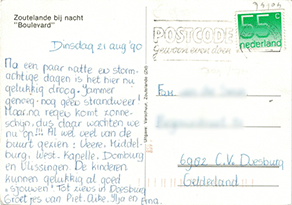 Zoutelande bij nacht
"Boulevard"
Dinsdag 21 aug '90
Na een paar natte en storm-
achtige dagen is het hier nu
gelukkig droog. Jammer
genoeg nog geen strandweer!
Maar na regen komt zonne-
schijn, dus daar wachten we
nu op!!! Al wel veel van de
buurt gezien: Veere, Middel-
burg, West-Kapelle, Domburg
en Vlissingen. De kinderen
kunnen gelukkig al goed
"sjouwen". Tot ziens in Doesburg
Groetjes van Piet, Aike, Ilja en
POSTCODE
gewoon even doen
55c
nederland
Fam.
6982 C.V. Doesburg
Gelderland